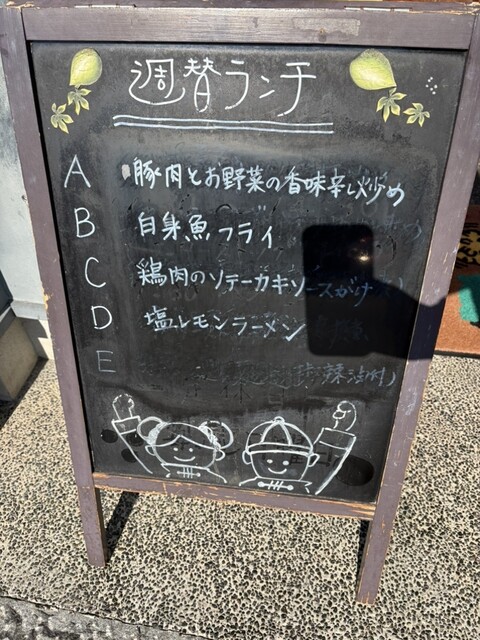 週替ランチ
A 豚肉とお野菜の香味辛し炒め
B 白身魚フライ
C 鶏肉のソテーカキソースがけ
D 塩レモンラーメン
E